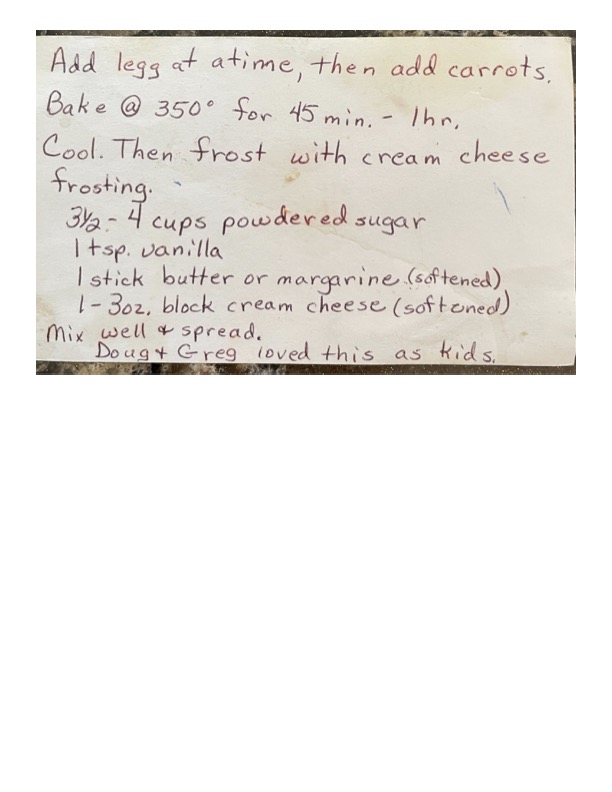 Add 1egg at atime, then add carrots.
Bake @ 350° for 45 min. - 1hr.
Cool. Then frost with cream cheese
frosting.
3½ - 4 cups powdered sugar
1 tsp. vanilla
1 stick butter or margarine (softened)
1 - 3oz. block cream cheese (softened)
Mix well & spread.
Doug + Greg loved this as kids.